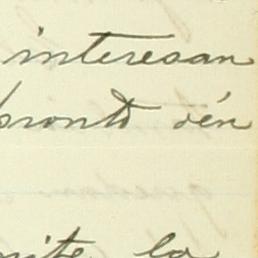 interesan
pronto dén
mite la